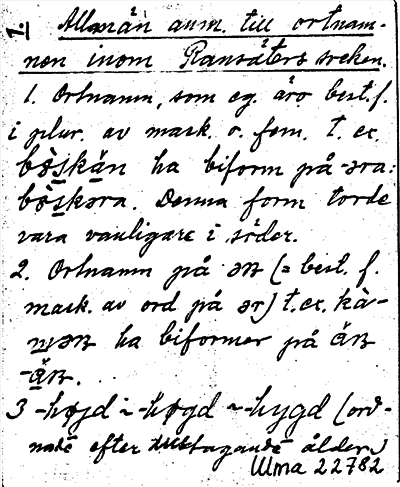 1. Allmän anm. till ortnam-
nen inom Ransäters socken.
1. Ortnamn, som eg. äro best. f.
i plur. av mask. o. fem. t. ex.
bòskän ha biform på -əra:
bòskəra. Denna form torde
vara vanligare i söder.
2. Ortnamn på ən (= best. f.
mask. av ord på ər) t. ex. kà-
ən ha biformer på än
-än.
3 -højd ~ -høgd ~ -hygd (ord-
nade efter tilltagande ålder)
Ulma 22782